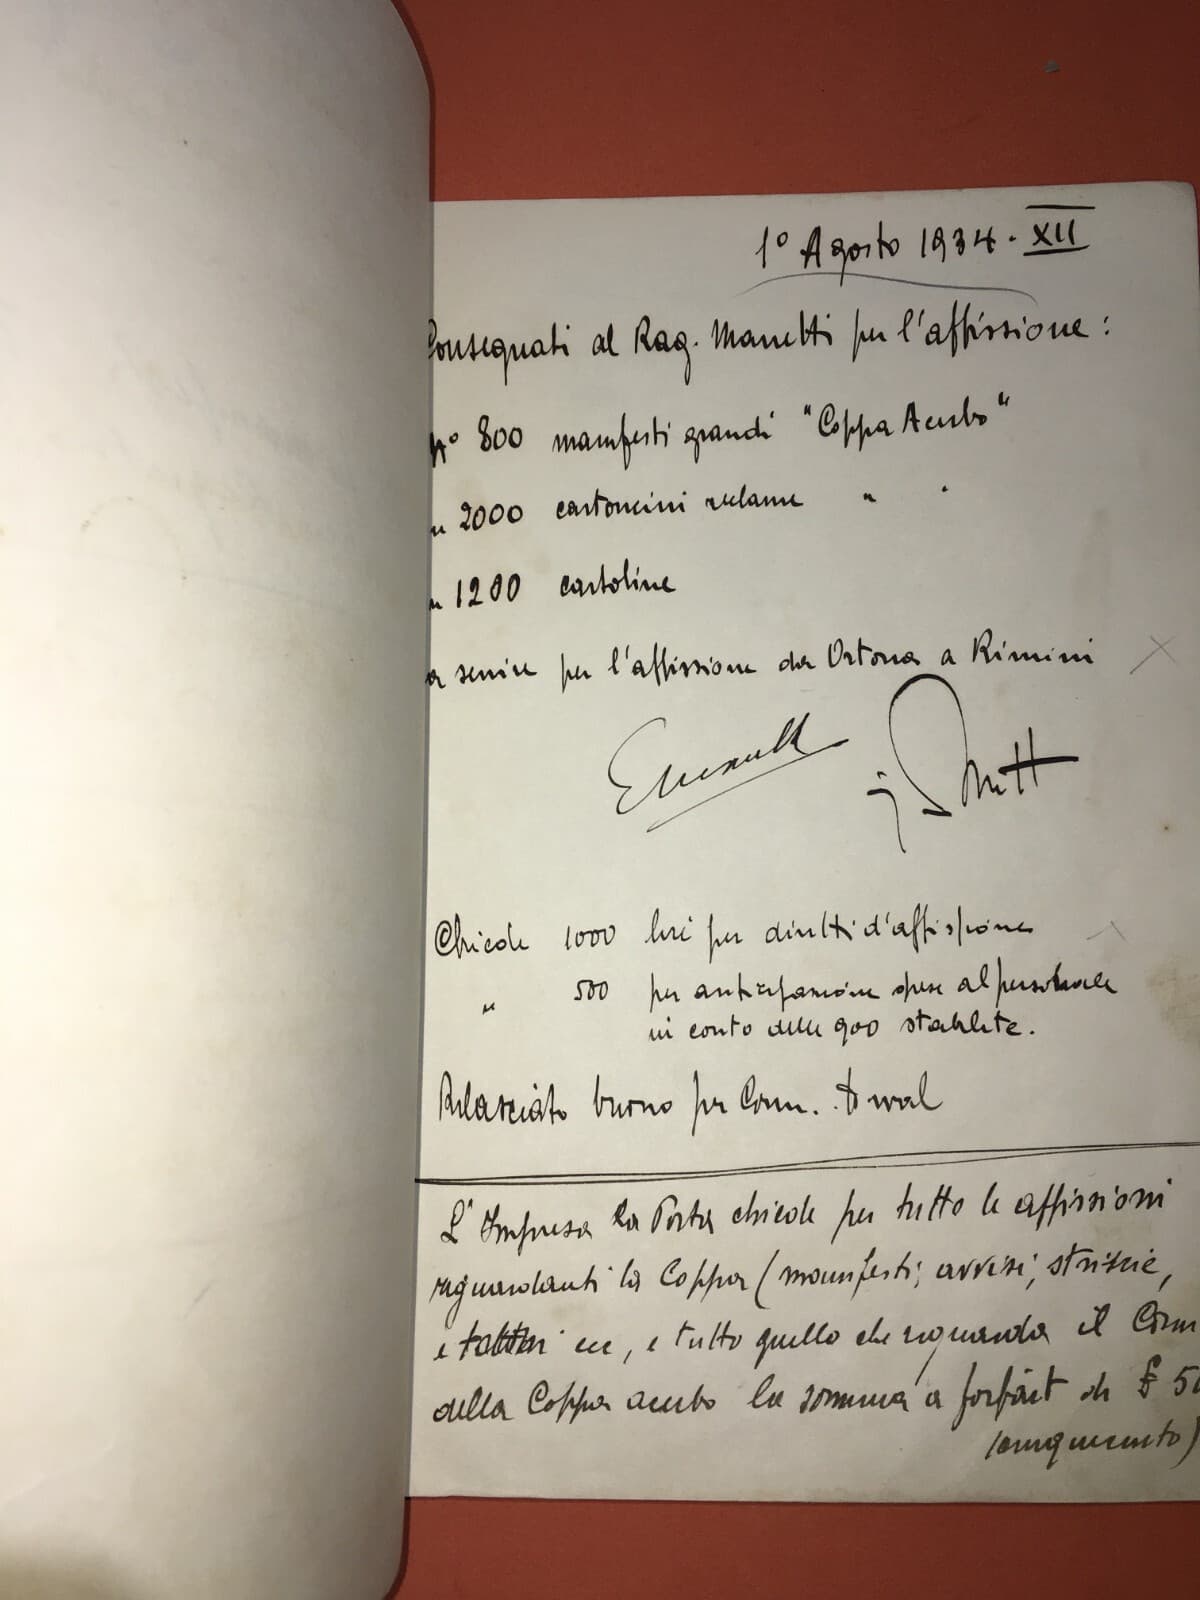 1º Agosto 1934 - XII
Consegnati al Rag. Manetti per l'affissione:
Nº 800 manifesti grandi "Coppa Acerbo"
" 2000 cartoncini reclame " "
" 1200 cartoline
a servire per l'affissione da Ortona a Rimini
Chiede 1000 lire per diritti d'affissione
" 500 per anticipazione spese al personale
in conto delle 900 stabilite.
Rilasciato buono per Com.
L'Impresa La Porta chiede per tutte le affissioni
riguardanti la Coppa (manifesti, avvisi, striscie,
e ecc, e tutto quello che riguarda il Com
della Coppa Acerbo la somma a forfait di £ 50
(cinquecento)